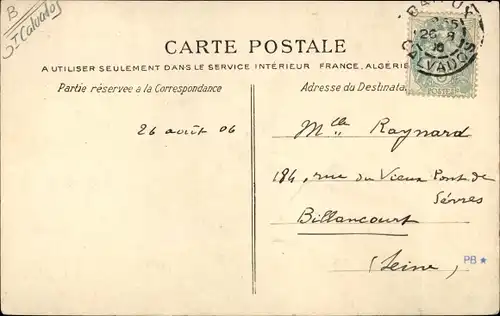 B
Calvados
CARTE POSTALE
A UTILISER SEULEMENT DANS LE SERVICE INTÉRIEUR FRANCE, ALGÉRIE
Partie réservée à la Correspondance
Adresse du Destinata
CALVADOS
POSTES
26 août 06
Mlle Raynard
184, rue du Vieux Pont de
Sévres
Billancourt
(Seine)
PB ★